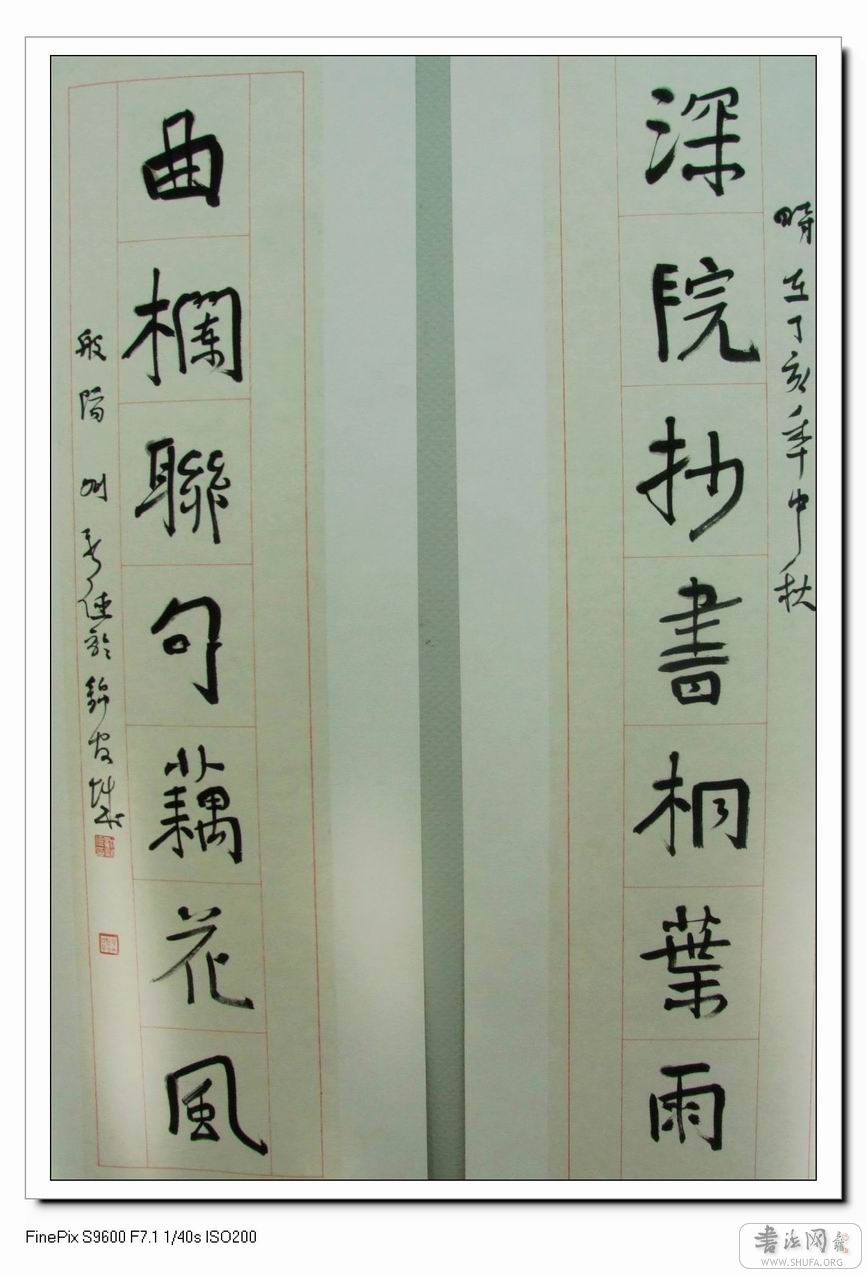 深院抄書桐葉雨
時在丁亥年中秋
曲欄聯句藕花風
FinePix S9600 F7.1 1/40s ISO200
書法网
WWW.SHUFA.ORG